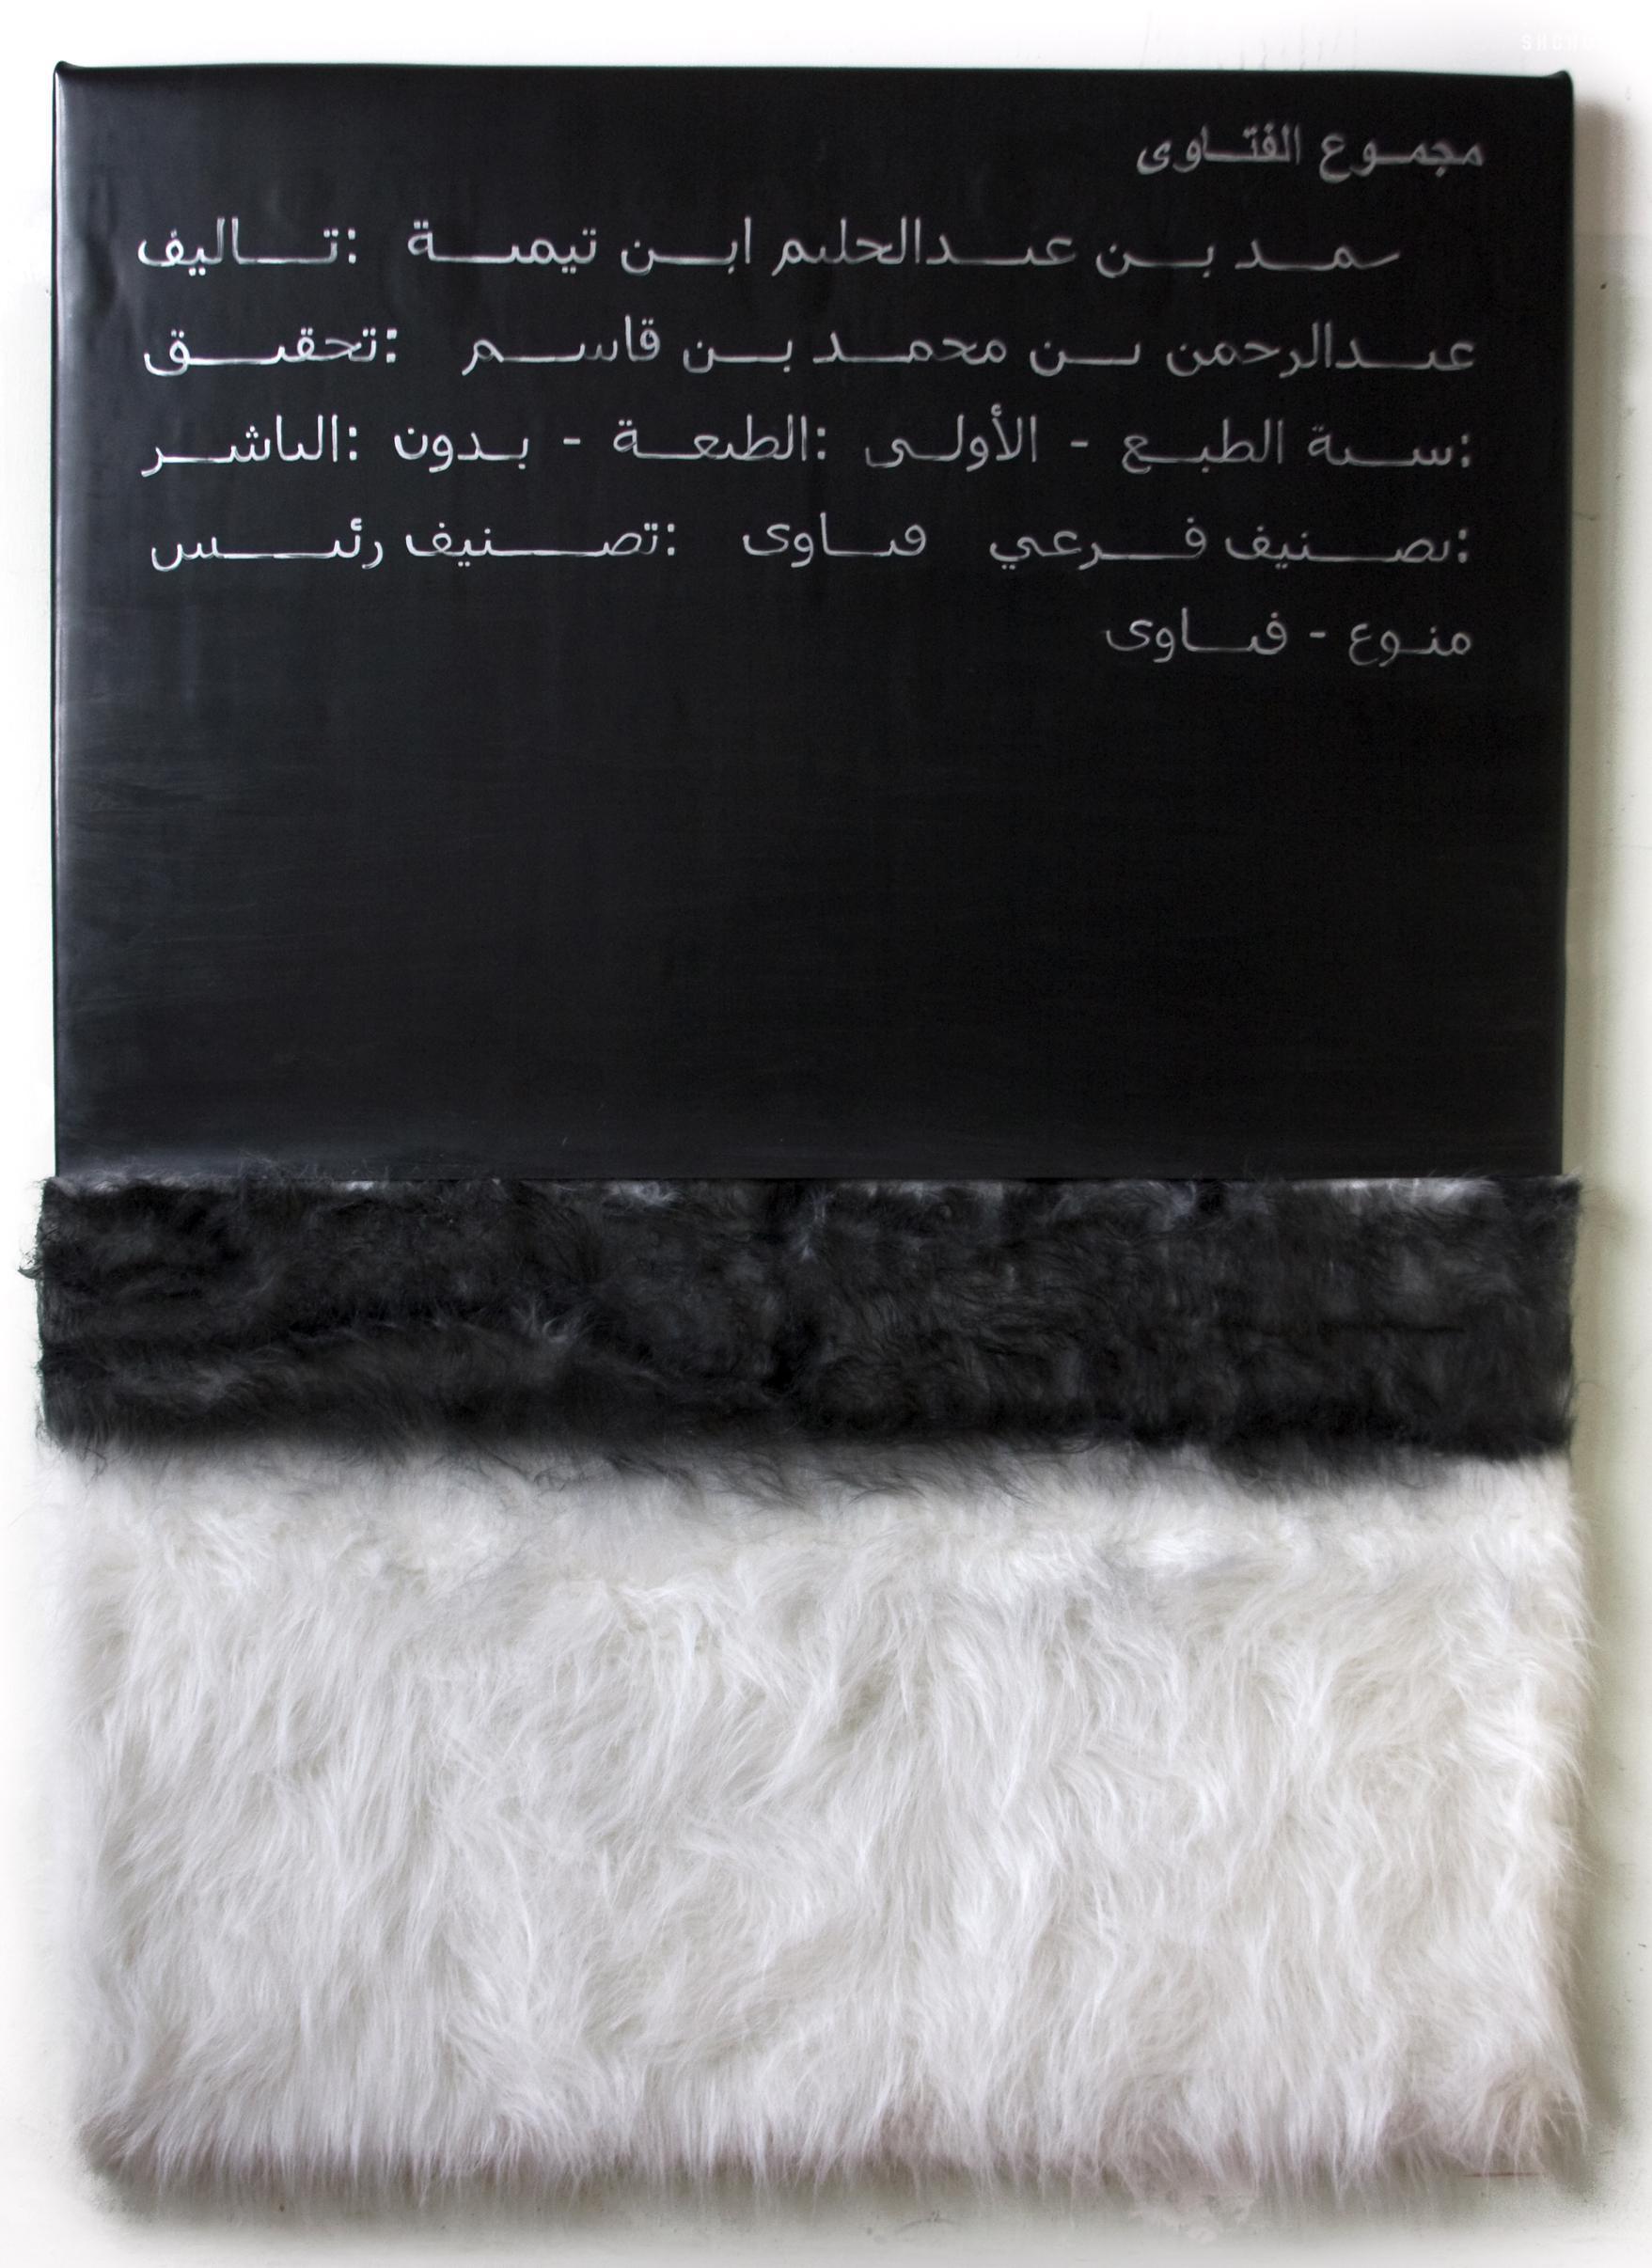 مجموع الفتاوى
مد بن عبدالحليم ابن تيمية :تاليف
عبدالرحمن بن محمد بن قاسم :تحقيق
:سنة الطبع - الأولى :الطبعة - بدون :الناشر
:تصنيف فرعي فتاوى :تصنيف رئيس
منوع - فتاوى